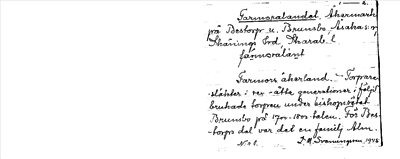 Farmoralandet, Åkermark
på Bestorp u. Brunsbo, Asaka: n
Skånings hrd, Skarab. l
farmorslant
Farmors åkerland. - Torpare
släkter i sex-åtta generationer i följd
brukade torpen under biskopsätet
Brunsbo på 1700-1800-talen. För Bes-
torps del var det en familj Alm.
N:o 1. S. M. Svenungsson, 1948